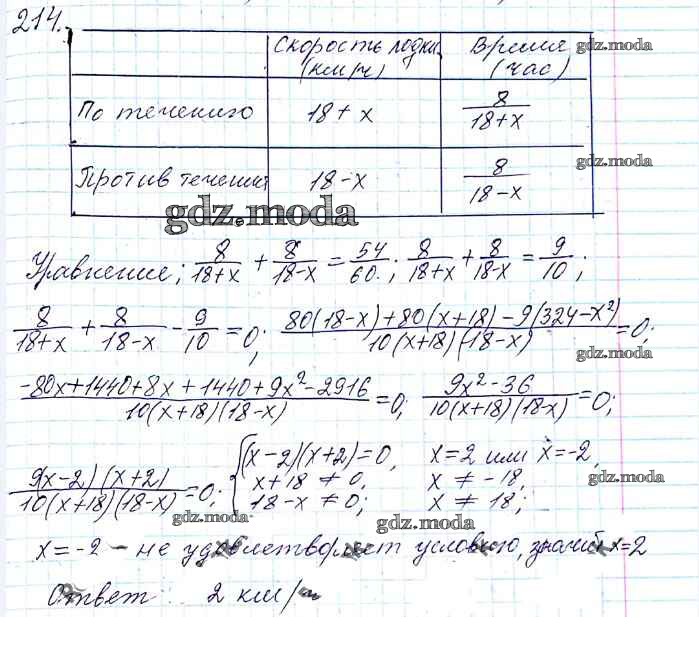 214.
Скорость лодки Время gdz.moda
(км/ч) (час)
По течению 18+x 8/(18+x)
gdz.moda
Против течения 18-x 8/(18-x)
gdz.moda
Уравнение; 8/(18+x) + 8/(18-x) = 54/60; 8/(18+x) + 8/(18-x) = 9/10;
8/(18+x) + 8/(18-x) - 9/10 = 0; (80(18-x)+80(x+18)-9(324-x²))/(10(x+18)(18-x)) = 0;
gdz.moda
(-80x+1440+8x+1440+9x²-2916)/(10(x+18)(18-x)) = 0; (9x²-36)/(10(x+18)(18-x)) = 0;
9(x-2)(x+2)/(10(x+18)(18-x)) = 0; { (x-2)(x+2)=0, x=2 или x=-2,
x+18 ≠ 0, x ≠ -18,
gdz.moda
18-x ≠ 0; x ≠ 18;
gdz.moda gdz.moda
x=-2 - не удовлетворяет условию, значит x=2
Ответ: 2 км/ч